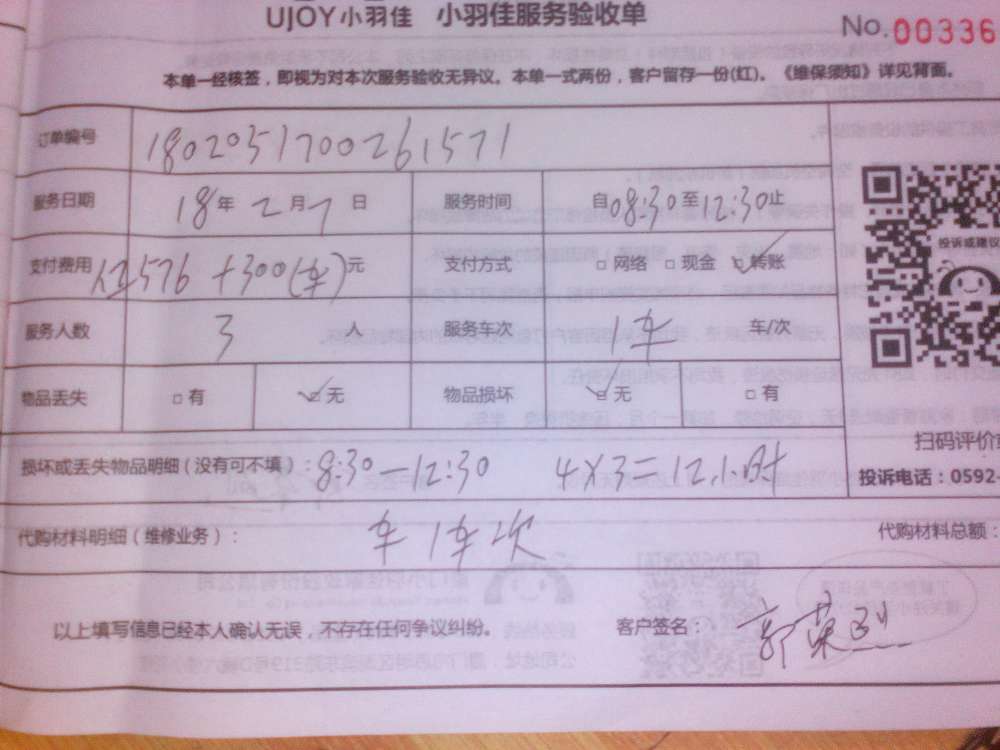 UJOY小羽佳 小羽佳服务验收单
No. 00336
本单一经核签，即视为对本次服务验收无异议。本单一式两份，客户留存一份(红)。《维保须知》详见背面。
订单编号 1802051700261571
服务日期 18年2月7日 服务时间 自08:30至12:30止
投诉或建议
支付费用 576+300(车)元 支付方式 □网络 □现金 ☑转账
服务人数 3人 服务车次 1车 车/次
物品丢失 □有 ☑无 物品损坏 ☑无 □有
扫码评价
损坏或丢失物品明细（没有可不填）：8:30—12:30 4×3=12小时
投诉电话：0592-
代购材料明细（维修业务）： 车1车次 代购材料总额：
以上填写信息已经本人确认无误，不存在任何争议纠纷。 客户签名：